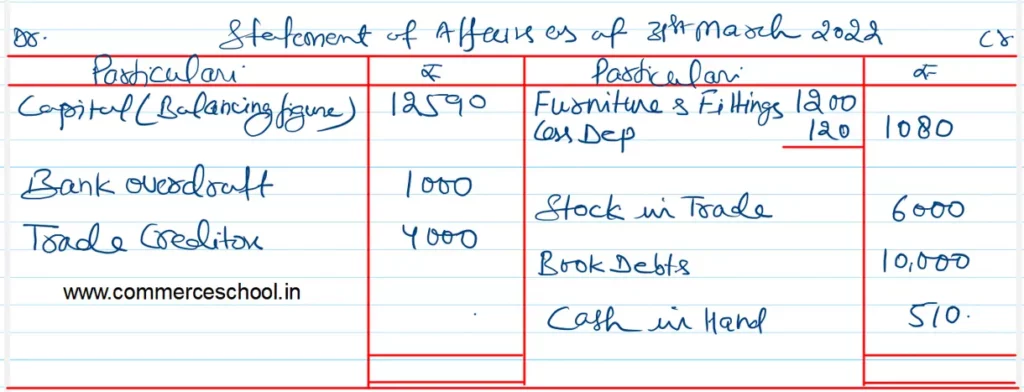 Dr. Statement of Affairs as at 31st March 2022 Cr
Particulars ₹ Particulars ₹
Capital (Balancing figure) 12590 Furniture & Fittings 1200
Less Dep 120 1080
Bank overdraft 1000
Stock in Trade 6000
Trade Creditors 4000
Book Debts 10,000
www.commerceschool.in
Cash in Hand 510.